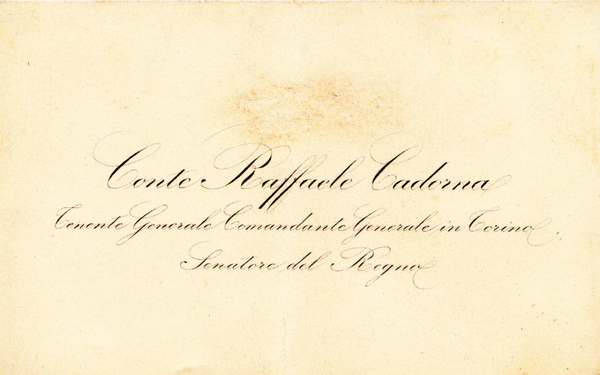 Conte Raffaele Cadorna
Tenente Generale Comandante Generale in Torino
Senatore del Regno